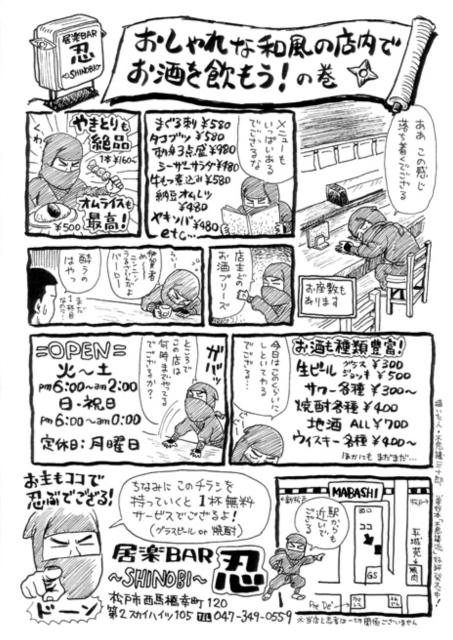 居楽BAR
忍
~SHINOBI~
おしゃれな和風の店内で
お酒を飲もう!の巻
ああ この感じ
落ち着くでござる
お座敷も
あります
メニューも
いっぱいある
でござるな
まぐろ刺 ¥580
タコブツ ¥580
刺身3点盛 ¥980
シーザーサラダ ¥980
牛もつ煮込み ¥580
納豆オムレツ
¥480
ヤキソバ ¥480
etc…
やきとりも
絶品
1本¥160~
オムライスも
最高!
¥500
店主どの
お酒プリーズ
酔うの
はやっ
お酒も種類豊富!
生ビール グラス ¥300
ジョッキ ¥500
サワー各種 ¥300~
焼酎各種 ¥400
地酒 ALL ¥700
ウイスキー各種 ¥400~
ほかにもまだまだ…
今日はこのくらいに
しといてやる
でござる…
ガバッ
ところで
この店は
何時までやってる
でござるか?
=OPEN=
火~土
pm6:00~am2:00
日・祝日
pm6:00~am0:00
定休日:月曜日
お主もココで
忍ぶでござる!
ドーン
ちなみに このチラシを
持っていくと 1杯無料
サービスでござるよ!
(グラスビール or 焼酎)
居楽BAR
忍
~SHINOBI~
松戸市西馬橋幸町120
第2スカイハイツ105 TEL 047-349-0559
駅から
近いで
ござる
MABASHI
ココ
GS
平城苑
焼肉
※当店と忍者は一切関係ございません